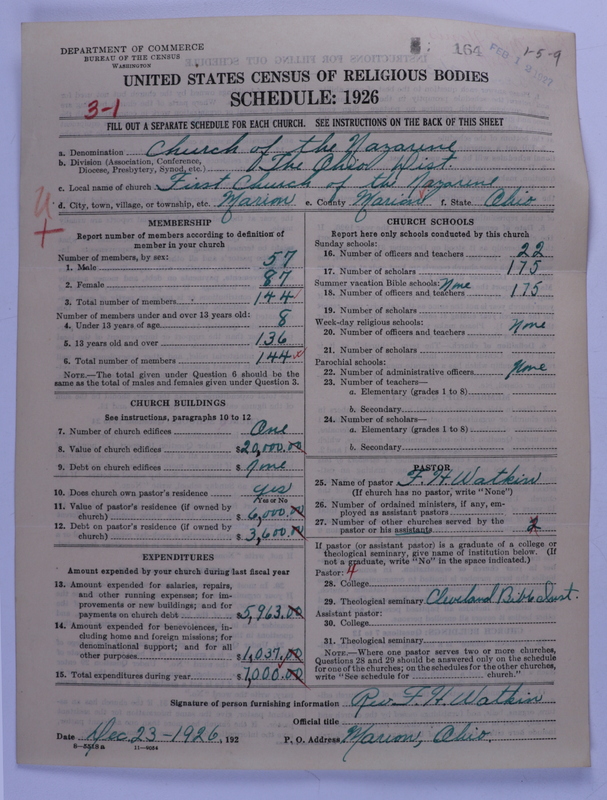 DEPARTMENT OF COMMERCE
BUREAU OF THE CENSUS
WASHINGTON
164
FEB 1 2 1927
1-5-9
UNITED STATES CENSUS OF RELIGIOUS BODIES
SCHEDULE: 1926
3-1
FILL OUT A SEPARATE SCHEDULE FOR EACH CHURCH. SEE INSTRUCTIONS ON THE BACK OF THIS SHEET
a. Denomination Church of the Nazarene
b. Division (Association, Conference, Diocese, Presbytery, Synod, etc.) The Ohio Dist.
c. Local name of church First Church of the Nazarene
d. City, town, village, or township, etc. Marion e. County Marion f. State Ohio
MEMBERSHIP
Report number of members according to definition of
member in your church
Number of members, by sex:
1. Male 57
2. Female 87
3. Total number of members 144
Number of members under and over 13 years old:
4. Under 13 years of age 8
5. 13 years old and over 136
6. Total number of members 144
NOTE.—The total given under Question 6 should be
same as the total of males and females given under Question 3.
CHURCH BUILDINGS
See instructions, paragraphs 10 to 12
7. Number of church edifices One
8. Value of church edifices $20,000.00
9. Debt on church edifices $ None
10. Does church own pastor's residence Yes
Yes or No
11. Value of pastor's residence (if owned by
church) $ 6,000.00
12. Debt on pastor's residence (if owned by
church) $ 3,600.00
EXPENDITURES
Amount expended by your church during last fiscal year
13. Amount expended for salaries, repairs,
and other running expenses; for im-
provements or new buildings; and for
payments on church debt $5,963.00
14. Amount expended for benevolences, in-
cluding home and foreign missions; for
denominational support; and for all
other purposes $1,037.00
15. Total expenditures during year $7,000.00
CHURCH SCHOOLS
Report here only schools conducted by this church
Sunday schools:
16. Number of officers and teachers 22
17. Number of scholars 175
Summer vacation Bible schools: None
18. Number of officers and teachers 175
19. Number of scholars
Week-day religious schools:
20. Number of officers and teachers None
21. Number of scholars
Parochial schools:
22. Number of administrative officers None
23. Number of teachers—
a. Elementary (grades 1 to 8)
b. Secondary
24. Number of scholars—
a. Elementary (grades 1 to 8)
b. Secondary
PASTOR
25. Name of pastor F. H. Watkin
(If church has no pastor, write "None")
26. Number of ordained ministers, if any, em-
ployed as assistant pastors
27. Number of other churches served by the
pastor or his assistants
If pastor (or assistant pastor) is a graduate of a college or
theological seminary, give name of institution below. (If
not a graduate, write "No" in the space indicated.)
Pastor: 4
28. College
29. Theological seminary Cleveland Bible Inst.
Assistant pastor:
30. College
31. Theological seminary
NOTE.—Where one pastor serves two or more churches,
Questions 28 and 29 should be answered only on the schedule
for one of the churches; on the schedules for the other churches,
write "See schedule for church."
Signature of person furnishing information Rev. F. H. Watkin
Official title
Date Dec. 23-1926, 192
P. O. Address Marion, Ohio.
8-5518a 11-9084